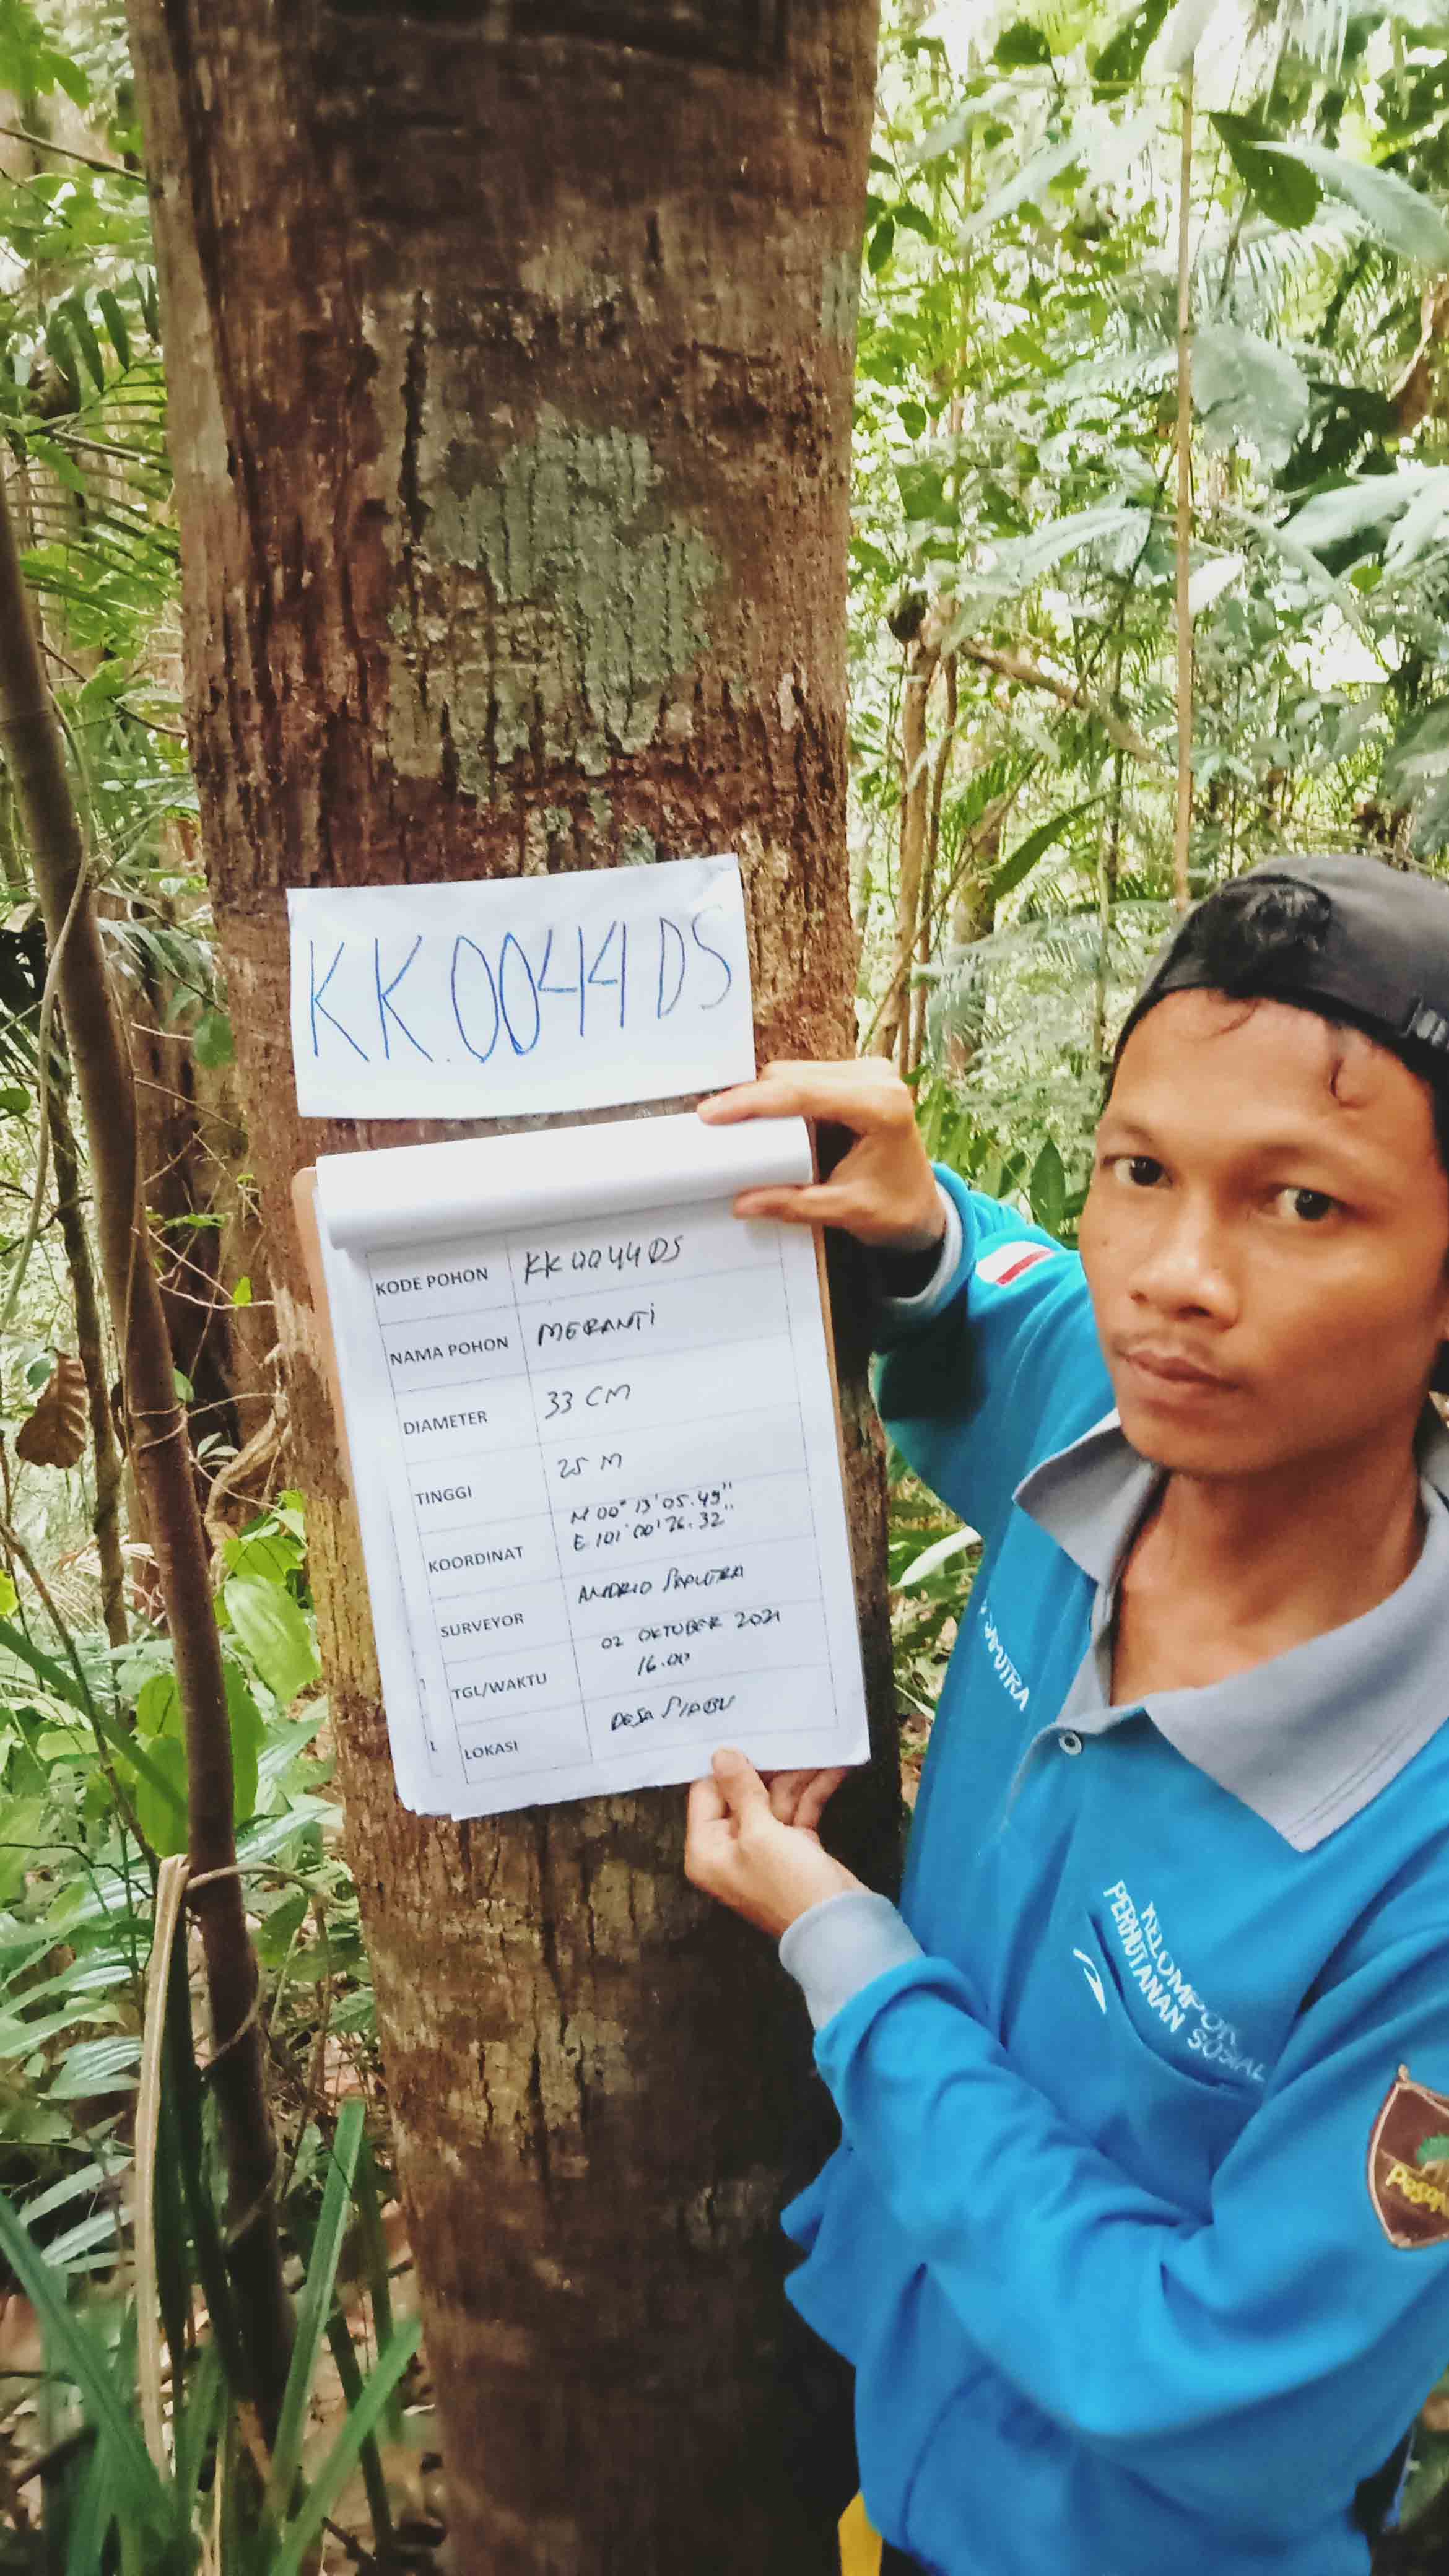 KK.0044DS
KODE POHON KK 0044DS
NAMA POHON MERANTI
DIAMETER 33 CM
TINGGI 25 M
KOORDINAT N 00° 13' 05.49"
E 101° 00' 26.32"
SURVEYOR ANDRIO SAPUTRA
TGL/WAKTU 02 OKTOBER 2021
16.00
LOKASI DESA SIABU
KELOMPOK
PERHUTANAN SOSIAL